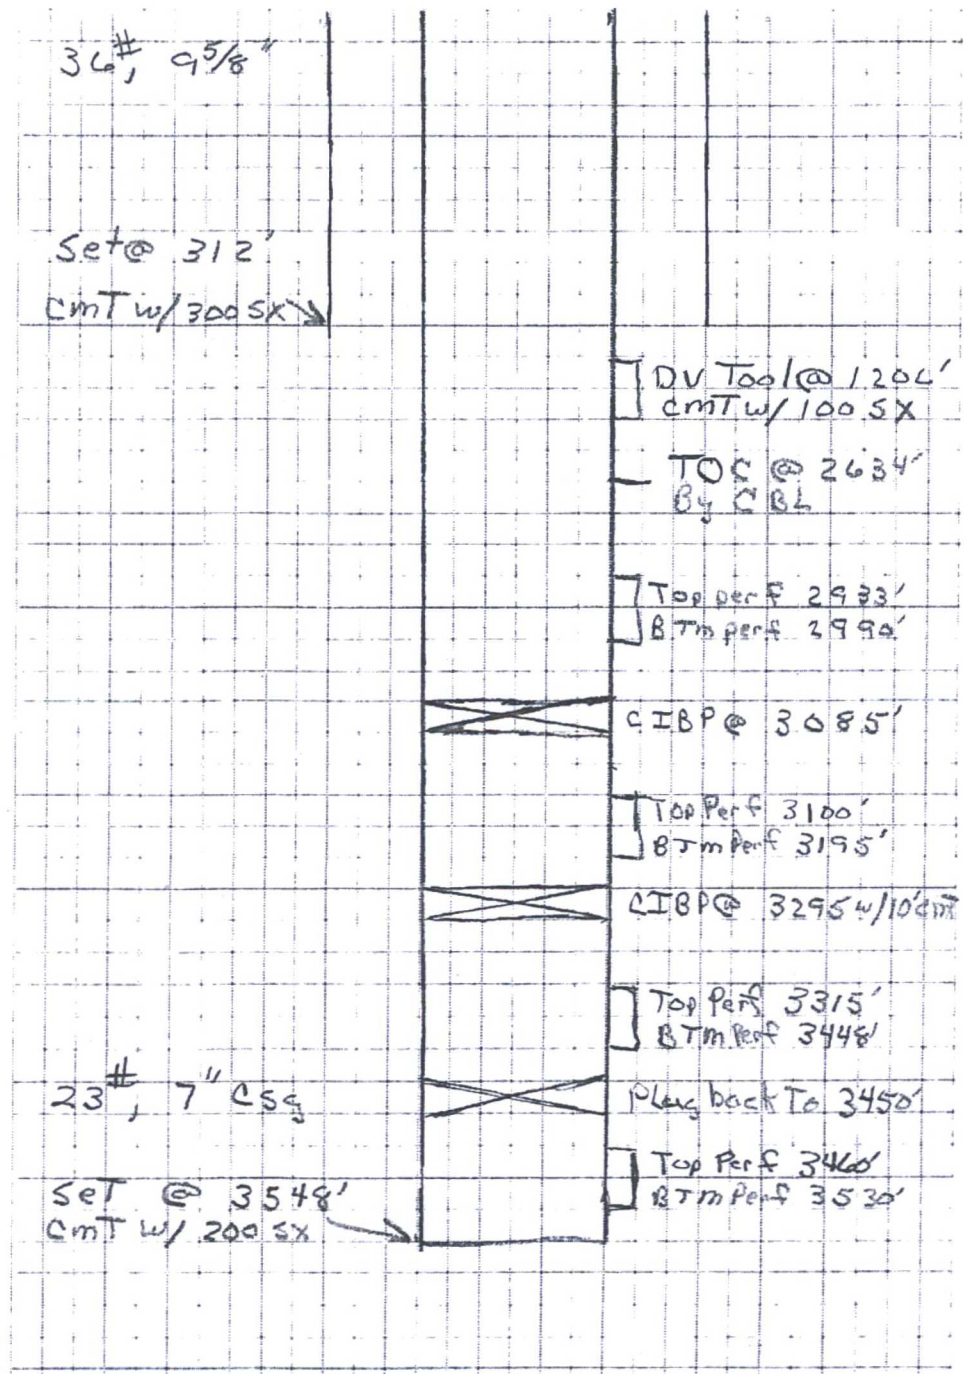 36#, 9 5/8"
Set@ 312'
CmT w/ 300 SX
DV Tool @ 1206'
CmT w/ 100 SX
TOC @ 2634'
By CBL
Top perf 2933'
BTm perf 2990'
CIBP @ 3085'
Top Perf 3100'
BTm Perf 3195'
CIBP@ 3295 w/10' cmt
Top Perf 3315'
BTm Perf 3448'
23#, 7" Csg
Plug back To 3450'
Top Perf 3460'
BTm Perf 3530'
SeT @ 3548'
CmT w/ 200 SX